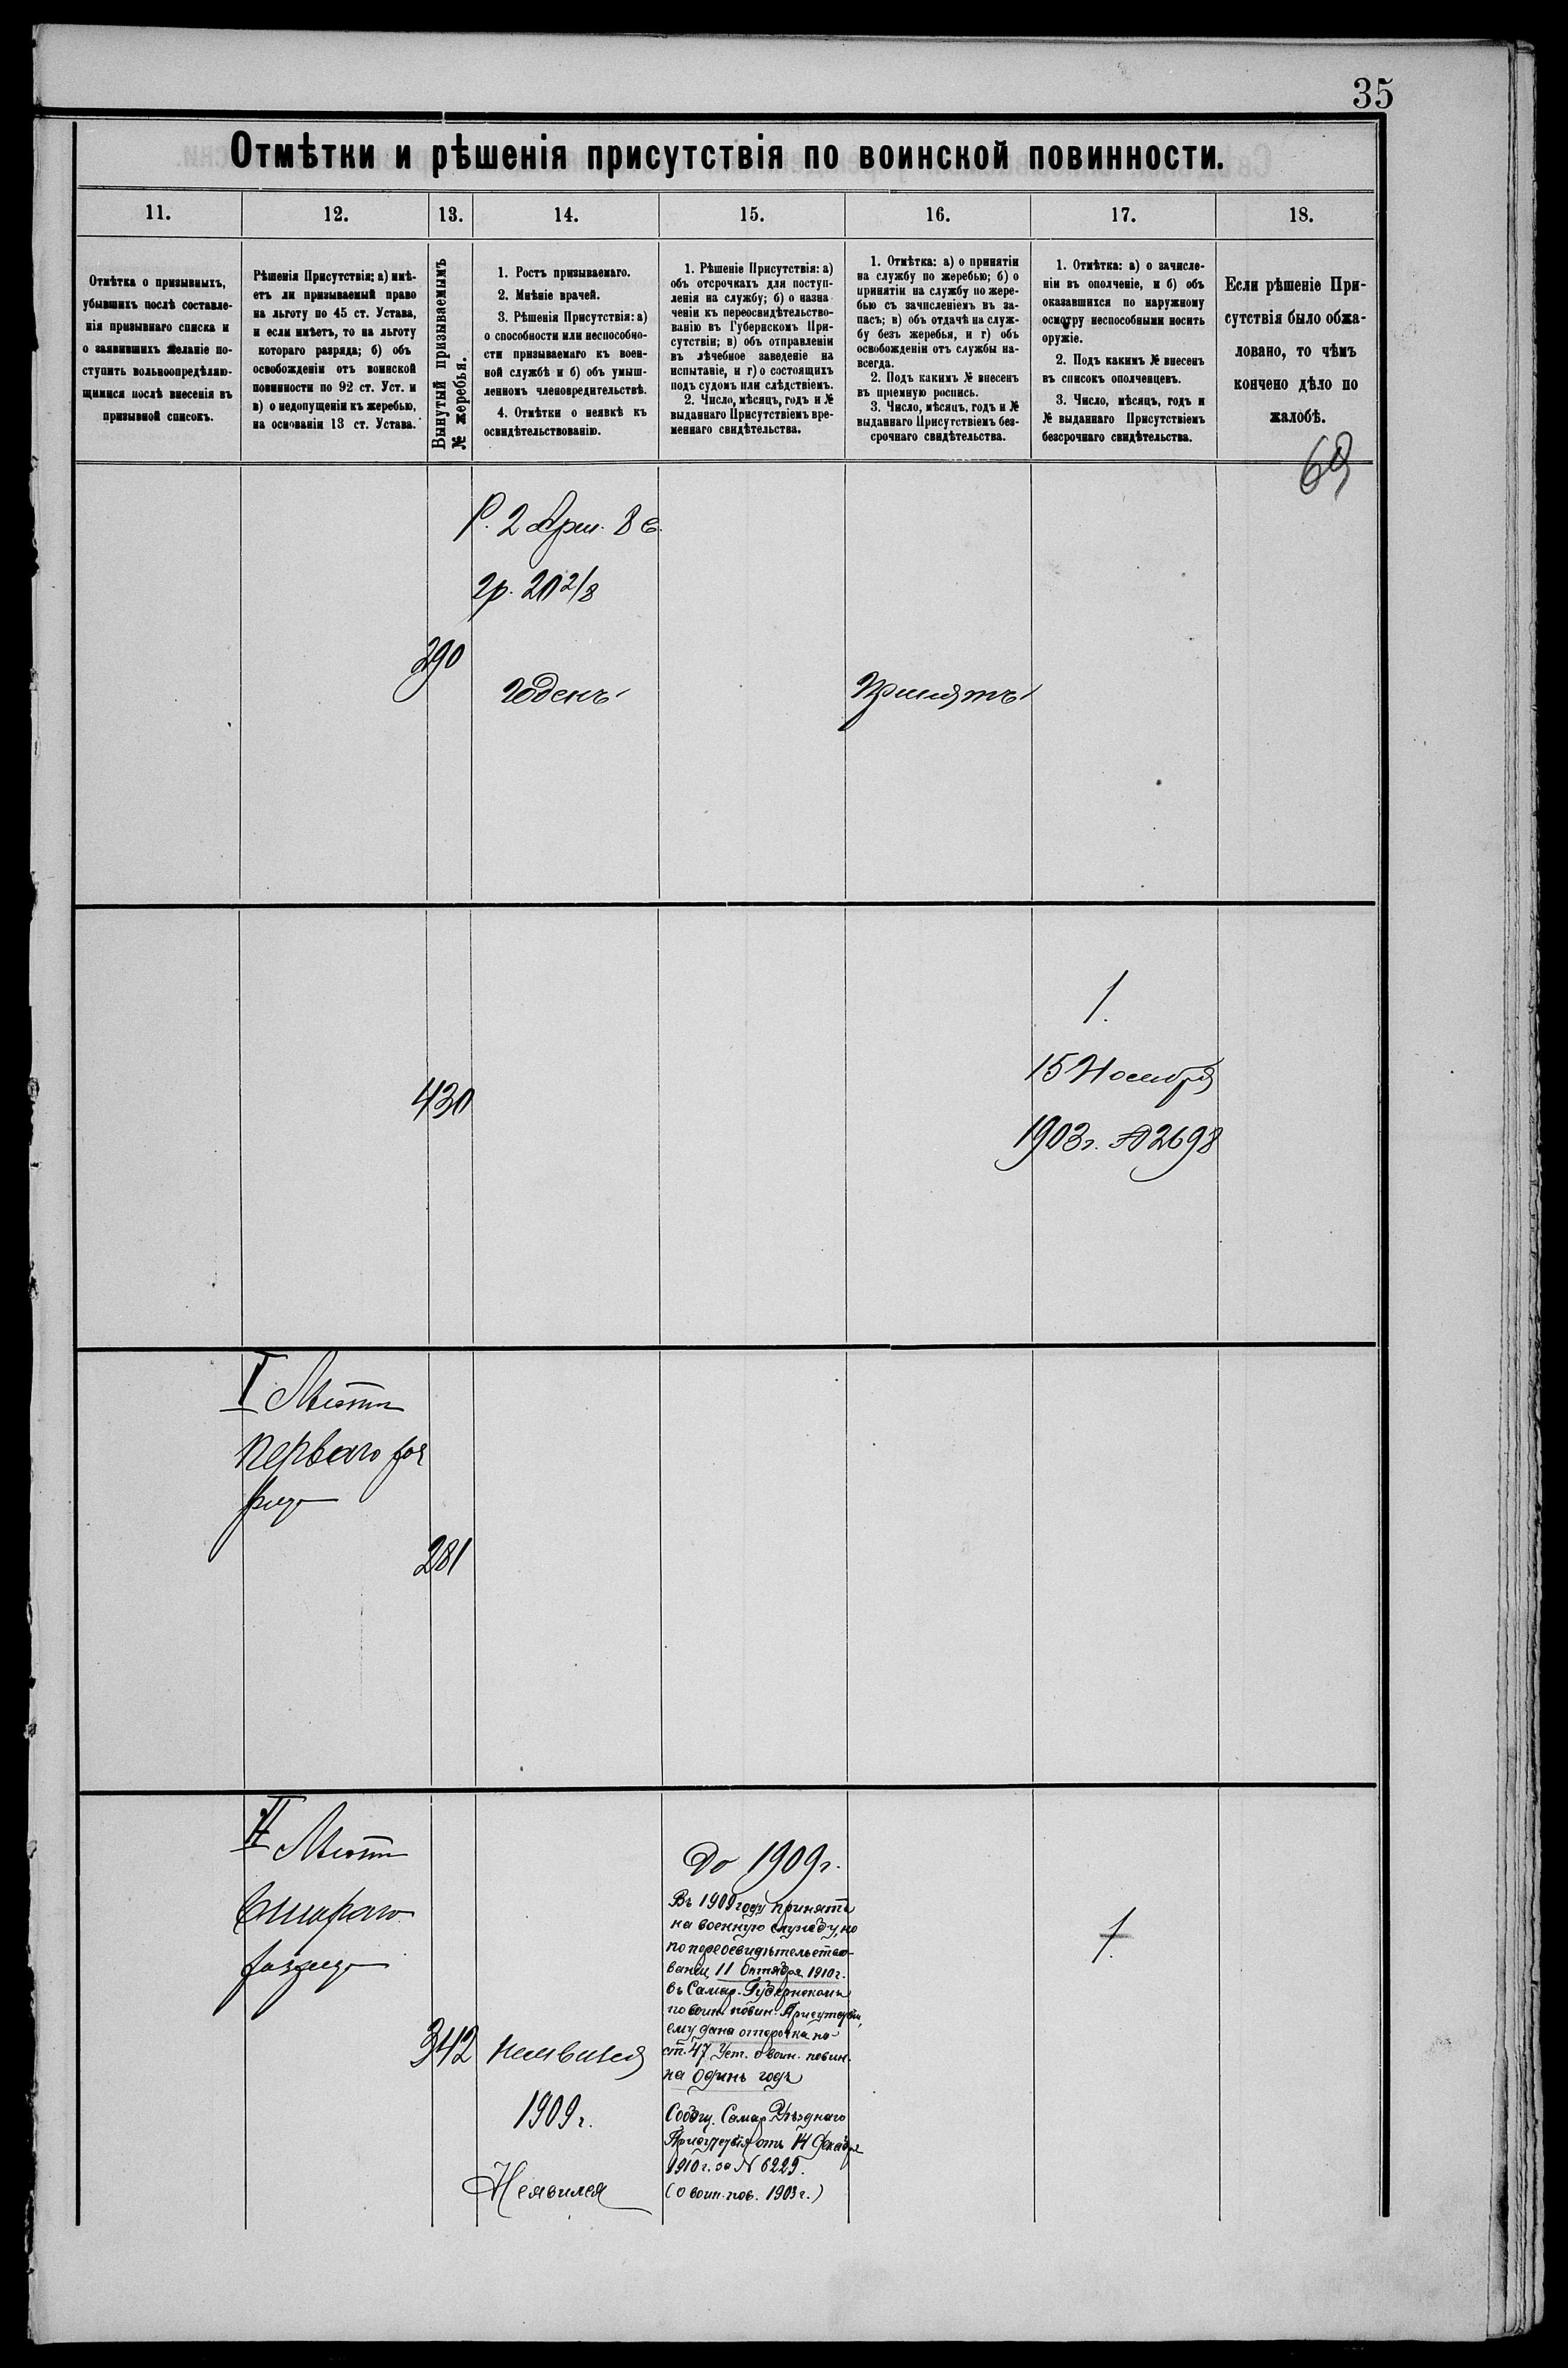 35
Отмѣтки и рѣшенія присутствія по воинской повинности.
11.
12.
13.
14.
15.
16.
17.
18.
Отмѣтка о призывныхъ,
убывшихъ послѣ составле-
нія призывнаго списка и
о заявившихъ желаніе по-
ступить вольноопредѣляю-
щимися послѣ внесенія въ
призывной списокъ.
Рѣшенія Присутствія: а) имѣ-
етъ ли призываемый право
на льготу по 45 ст. Устава,
и если имѣетъ, то на льготу
котораго разряда; б) объ
освобожденіи отъ воинской
повинности по 92 ст. Уст. и
в) о недопущеніи къ жеребью,
на основаніи 13 ст. Устава.
Вынутый призываемымъ
№ жеребья.
1. Ростъ призываемаго.
2. Мнѣніе врачей.
3. Рѣшенія Присутствія: а)
о способности или неспособно-
сти призываемаго къ воен-
ной службѣ и б) объ умыш-
ленномъ членовредительствѣ.
4. Отмѣтки о неявкѣ къ
освидѣтельствованію.
1. Рѣшеніе Присутствія: а)
объ отсрочкахъ для поступ-
ленія на службу; б) о назна-
ченіи къ переосвидѣтельство-
ванію въ Губернскомъ При-
сутствіи; в) объ отправленіи
въ лѣчебное заведеніе на
испытаніе, и г) о состоящихъ
подъ судомъ или слѣдствіемъ.
2. Число, мѣсяцъ, годъ и №
выданнаго Присутствіемъ вре-
меннаго свидѣтельства.
1. Отмѣтка: а) о принятіи
на службу по жеребью; б) о
принятіи на службу по жере-
бью съ зачисленіемъ въ за-
пасъ; в) объ отдачѣ на служ-
бу безъ жеребья, и г) объ
освобожденіи отъ службы на-
всегда.
2. Подъ какимъ № внесенъ
въ пріемную роспись.
3. Число, мѣсяцъ, годъ и №
выданнаго Присутствіемъ без-
срочнаго свидѣтельства.
1. Отмѣтка: а) о зачисле-
ніи въ ополченіе, и б) объ
оказавшихся по наружному
осмотру неспособными носить
оружіе.
2. Подъ какимъ № внесенъ
въ списокъ ополченцевъ.
3. Число, мѣсяцъ, годъ и
№ выданнаго Присутствіемъ
безсрочнаго свидѣтельства.
Если рѣшеніе При-
сутствія было обжа-
ловано, то чѣмъ
кончено дѣло по
жалобѣ.
Р. 2 Арш. 8 в.
гр. 20 2/8
290
годенъ
Принятъ
430
1.
15 Ноября
1903 г. № 2698
I Льготы
перваго раз
ряда
281
II Льготы
Второго
разряда
342
неявился
1909 г.
Неявился
До 1909 г.
Въ 1909 году принятъ
на военную службу, но
по переосвидѣтельство-
ваніи 11 Октября 1910 г.
въ Самар. Губернскомъ
по воин. повин. Присутствіи,
ему дана отсрочка по
ст. 47 Уст. о воин. повин.
на одинъ годъ
Сообщ. Самар. Уѣзднаго
Присутствія отъ 14 Декабря
1910 г. за № 6229.
(о воин. пов. 1903 г.)
1.